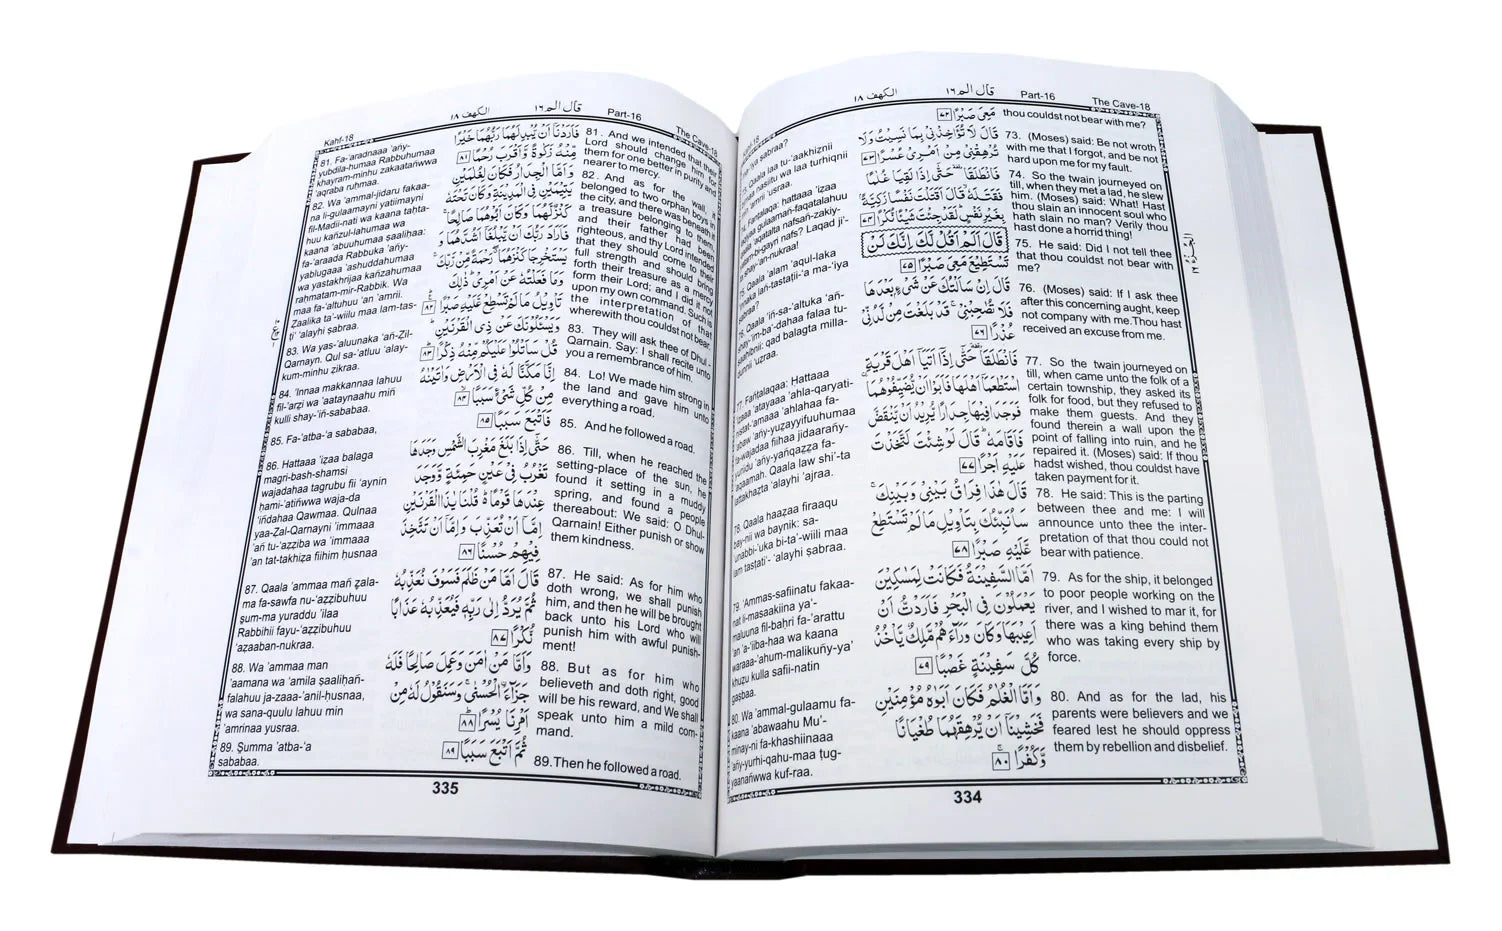 الكهف ١٨
قال الم ١٦
Part-16
The Cave-18
sabraa?
Qaala laa tu-'aakhiznii
nasiitu wa laa turhiqnii
'usraa.
Fanṭalaqa: hattaaa 'izaa
gulaaman-faqatalahuu
'aqatalta nafsañ-zakiy-
bi-gayri nafs? Laqad ji'-
shay-'an-nukraa!
75. Qaala 'alam 'aqul-laka
lañ-tastatii-'a ma-'iya
76. Qaala 'iñ-sa-'altuka 'añ-
shay-'im-ba'-dahaa falaa tu-
qad balagta milla-
'uzraa.
77. Fanṭalaqaa: Hattaaa
'izaaa 'atayaaa 'ahla-qaryati-
'ahlahaa fa-
'añy-yuẓayyifuuhumaa
fa-wajadaa fiihaa jidaarañy-
'añy-yañqaẓẓa fa-
'aqaamah. Qaala law shi'-ta
lattakhaẓta 'alayhi 'ajraa.
78. Qaala haaẓaa firaaqu
bay-nii wa baynik: sa-
'unabbi-'uka bi-ta'-wiili maa
lam tastati'- 'alayhi ṣabraa.
79. 'Ammas-safiinatu fakaa-
nat li-masaakiina ya'-
maluuna fil-baḥri fa-'arattu
'an 'a-'iiba-haa wa kaana
waraaa-'ahum-malikuñy-ya'-
khuẓu kulla safii-natin
gasbaa.
80. Wa 'ammal-gulaamu fa-
kaana 'abawaahu Mu'-
minay-ni fa-khashiinaaa
'añy-yurhi-qahu-maa ṭug-
yaanañwwa kuf-raa.
مَعِىَ صَبْرًا ﴿٧٢﴾
قَالَ لَا تُؤَاخِذْنِى بِمَا نَسِيْتُ وَلَا
تُرْهِقْنِى مِنْ اَمْرِىْ عُسْرًا ﴿٧٣﴾
فَانْطَلَقَا حَتّٰى اِذَا لَقِيَا غُلٰمًا
فَقَتَلَهٗ قَالَ اَقَتَلْتَ نَفْسًا زَكِيَّةًۢ
بِغَيْرِ نَفْسٍ لَقَدْ جِئْتَ شَيْئًا نُّكْرًا ﴿٧٤﴾
قَالَ اَلَمْ اَقُلْ لَّكَ اِنَّكَ لَنْ
تَسْتَطِيْعَ مَعِىَ صَبْرًا ﴿٧٥﴾
قَالَ اِنْ سَاَلْتُكَ عَنْ شَىْءٍۢ بَعْدَهَا
فَلَا تُصٰحِبْنِىْ قَدْ بَلَغْتَ مِنْ لَّدُنِّىْ
عُذْرًا ﴿٧٦﴾
فَانْطَلَقَا حَتّٰى اِذَا اَتَيَا اَهْلَ قَرْيَةِ
اسْتَطْعَمَا اَهْلَهَا فَاَبَوْا اَنْ يُّضَيِّفُوْهُمَا
فَوَجَدَا فِيْهَا جِدَارًا يُّرِيْدُ اَنْ يَّنْقَضَّ
فَاَقَامَهٗ قَالَ لَوْ شِئْتَ لَتَّخَذْتَ
عَلَيْهِ اَجْرًا ﴿٧٧﴾
قَالَ هٰذَا فِرَاقُ بَيْنِىْ وَبَيْنِكَ
سَاُنَبِّئُكَ بِتَاْوِيْلِ مَا لَمْ تَسْتَطِعْ
عَّلَيْهِ صَبْرًا ﴿٧٨﴾
اَمَّا السَّفِيْنَةُ فَكَانَتْ لِمَسٰكِيْنَ
يَعْمَلُوْنَ فِى الْبَحْرِ فَاَرَدْتُّ اَنْ
اَعِيْبَهَا وَكَانَ وَرَآءَهُمْ مَّلِكٌ يَّاْخُذُ
كُلَّ سَفِيْنَةٍ غَصْبًا ﴿٧٩﴾
وَاَمَّا الْغُلٰمُ فَكَانَ اَبَوٰهُ مُؤْمِنَيْنِ
فَخَشِيْنَا اَنْ يُّرْهِقَهُمَا طُغْيَانًا
وَّكُفْرًا ﴿٨٠﴾
thou couldst not bear with me?
73. (Moses) said: Be not wroth
with me that I forgot, and be not
hard upon me for my fault.
74. So the twain journeyed on
till, when they met a lad, he slew
him. (Moses) said: What! Hast
thou slain an innocent soul who
hath slain no man? Verily thou
hast done a horrid thing!
75. He said: Did I not tell thee
that thou couldst not bear with
me?
76. (Moses) said: If I ask thee
after this concerning aught, keep
not company with me.Thou hast
received an excuse from me.
77. So the twain journeyed on
till, when came unto the folk of a
certain township, they asked its
folk for food, but they refused to
make them guests. And they
found therein a wall upon the
point of falling into ruin, and he
repaired it. (Moses) said: If thou
hadst wished, thou couldst have
taken payment for it.
78. He said: This is the parting
between thee and me: I will
announce unto thee the inter-
pretation of that thou could not
bear with patience.
79. As for the ship, it belonged
to poor people working on the
river, and I wished to mar it, for
there was a king behind them
who was taking every ship by
force.
80. And as for the lad, his
parents were believers and we
feared lest he should oppress
them by rebellion and disbelief.
334
Kahf-18
الكهف ١٨
قال الم ١٦
Part-16
The Cave-18
81. Fa-'aradnaaa 'añy-
yubdila-humaa Rabbuhumaa
khayram-minhu zakaatañwwa
'aqraba ruḥmaa.
82. Wa 'ammal-jidaru fakaa-
na li-gulaamayni yatiimayni
fil-Madii-nati wa kaana taḥta-
huu kañzul-lahumaa wa
kaana 'abuuhumaa ṣaaliḥaa:
fa-'araada Rabbuka 'añy-
yablugaaa 'ashuddahumaa
wa yastakhrijaa kañzahumaa
raḥmatam-mir-Rabbik. Wa
maa fa-'altuhuu 'an 'amrii.
Zaalika ta'-wiilu maa lam-tas-
ṭi' 'alayhi ṣabraa.
83. Wa yas-'aluunaka 'añ-Zil-
Qarnayn. Qul sa-'atluu 'alay-
kum-minhu zikraa.
84. 'Innaa makkannaa lahuu
fil-'arẓi wa 'aataynaahu miñ
kulli shay-'iñ-sababaa.
85. Fa-'atba-'a sababaa,
86. Hattaaa 'iẓaa balaga
magri-bash-shamsi
wajadahaa tagrubu fii 'aynin
ḥami-'atiñwwa waja-da
'iñdahaa Qawmaa. Qulnaa
yaa-Ẓal-Qarnayni 'immaaa
'añ tu-'aẓẓiba wa 'immaaa
an tat-takhiẓa fiihim ḥusnaa
87. Qaala 'ammaa mañ ẓala-
ma fa-sawfa nu-'aẓẓibuhuu
ṣum-ma yuraddu 'ilaa
Rabbihii fayu-'aẓẓibuhuu
'aẓaaban-nukraa.
88. Wa 'ammaa man
'aamana wa 'amila ṣaaliḥañ-
falahuu ja-zaaa-'anil-ḥusnaa,
wa sana-quulu lahuu min
'amrinaa yusraa.
89. Ṣumma 'atba-'a
sababaa.
فَاَرَدْنَا اَنْ يُّبْدِلَهُمَا رَبُّهُمَا خَيْرًا
مِّنْهُ زَكٰوةً وَّاَقْرَبَ رُحْمًا ﴿٨١﴾
وَاَمَّا الْجِدَارُ فَكَانَ لِغُلٰمَيْنِ
يَتِيْمَيْنِ فِى الْمَدِيْنَةِ وَكَانَ تَحْتَهٗ
كَنْزٌ لَّهُمَا وَكَانَ اَبُوْهُمَا صَالِحًا
فَاَرَادَ رَبُّكَ اَنْ يَّبْلُغَا اَشُدَّهُمَا وَ
يَسْتَخْرِجَا كَنْزَهُمَا رَحْمَةً مِّنْ رَّبِّكَ
وَمَا فَعَلْتُهٗ عَنْ اَمْرِىْ ذٰلِكَ
تَاْوِيْلُ مَا لَمْ تَسْطِعْ عَّلَيْهِ صَبْرًا ﴿٨٢﴾
وَيَسْئَلُوْنَكَ عَنْ ذِى الْقَرْنَيْنِ
قُلْ سَاَتْلُوْا عَلَيْكُمْ مِّنْهُ ذِكْرًا ﴿٨٣﴾
اِنَّا مَكَّنَّا لَهٗ فِى الْاَرْضِ وَاٰتَيْنٰهُ
مِنْ كُلِّ شَىْءٍ سَبَبًا ﴿٨٤﴾
فَاَتْبَعَ سَبَبًا ﴿٨٥﴾
حَتّٰى اِذَا بَلَغَ مَغْرِبَ الشَّمْسِ وَجَدَهَا
تَغْرُبُ فِىْ عَيْنٍ حَمِئَةٍ وَّوَجَدَ
عِنْدَهَا قَوْمًا قُلْنَا يٰذَا الْقَرْنَيْنِ
اِمَّا اَنْ تُعَذِّبَ وَاِمَّا اَنْ تَتَّخِذَ
فِيْهِمْ حُسْنًا ﴿٨٦﴾
قَالَ اَمَّا مَنْ ظَلَمَ فَسَوْفَ نُعَذِّبُهٗ
ثُمَّ يُرَدُّ اِلٰى رَبِّهٖ فَيُعَذِّبُهٗ عَذَابًا
نُّكْرًا ﴿٨٧﴾
وَاَمَّا مَنْ اٰمَنَ وَعَمِلَ صَالِحًا فَلَهٗ
جَزَآءَ الْحُسْنٰى وَسَنَقُوْلُ لَهٗ مِنْ
اَمْرِنَا يُسْرًا ﴿٨٨﴾
ثُمَّ اَتْبَعَ سَبَبًا ﴿٨٩﴾
81. And we intended that their
Lord should change him for
them for one better in purity and
nearer to mercy.
82. And as for the wall, it
belonged to two orphan boys in
the city, and there was beneath it
a treasure belonging to them
and their father had been
righteous, and thy Lord intended
that they should come to their
full strength and should bring
forth their treasure as a mercy
form their Lord; and I did it not
upon my own command. Such is
the interpretation of that
wherewith thou couldst not bear.
83. They will ask thee of Dhul -
Qarnain. Say: I shall recite unto
you a remembrance of him.
84. Lo! We made him strong in
the land and gave him unto
everything a road.
85. And he followed a road.
86. Till, when he reached the
setting-place of the sun, he
found it setting in a muddy
spring, and found a people
thereabout: We said: O Dhul-
Qarnain! Either punish or show
them kindness.
87. He said: As for him who
doth wrong, we shall punish
him, and then he will be brought
back unto his Lord who will
punish him with awful punish-
ment!
88. But as for him who
believeth and doth right, good
will be his reward, and We shall
speak unto him a mild com-
mand.
89.Then he followed a road.
335